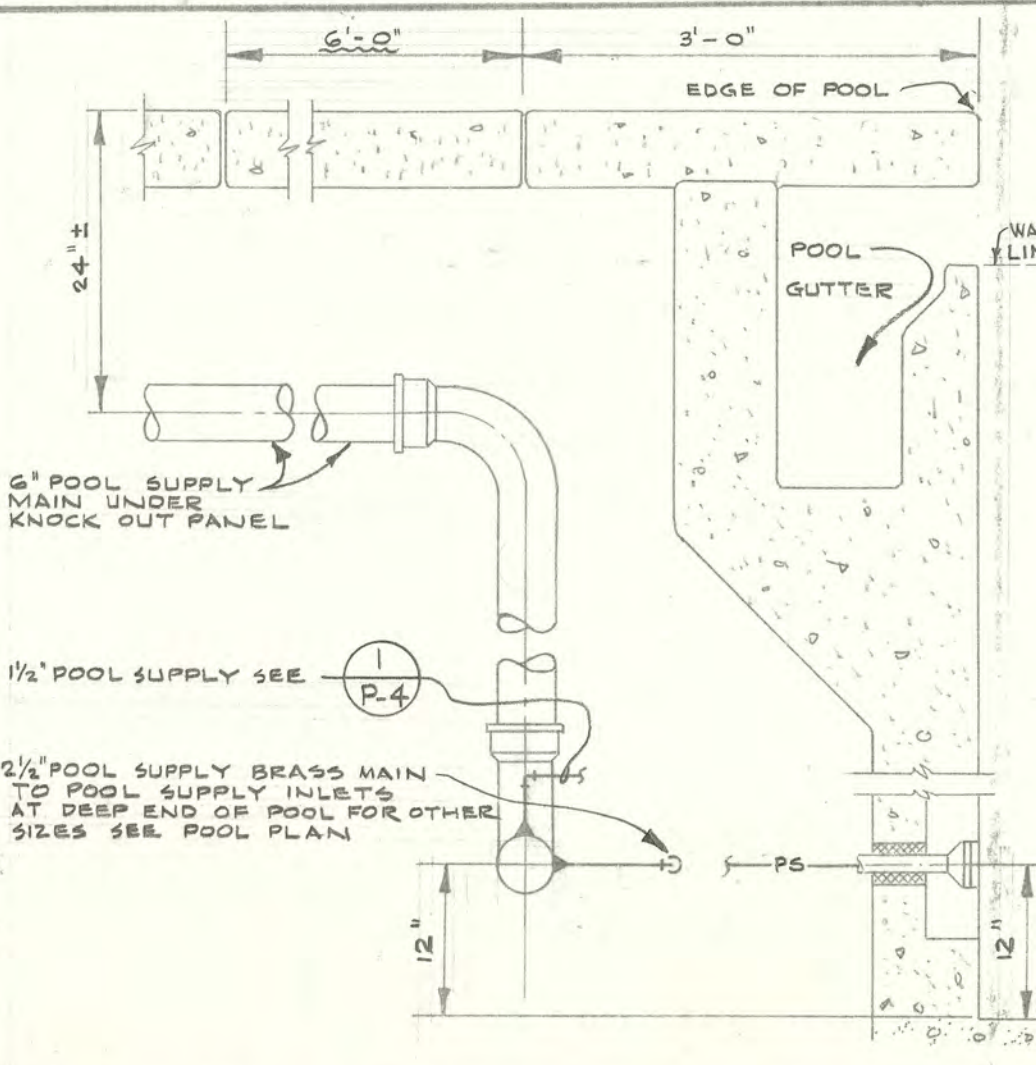 6'-0"
3'-0"
EDGE OF POOL
24" ±
POOL
GUTTER
6" POOL SUPPLY
MAIN UNDER
KNOCK OUT PANEL
1½" POOL SUPPLY SEE
1
P-4
2½" POOL SUPPLY BRASS MAIN
TO POOL SUPPLY INLETS
AT DEEP END OF POOL FOR OTHER
SIZES SEE POOL PLAN
PS
12"
12"